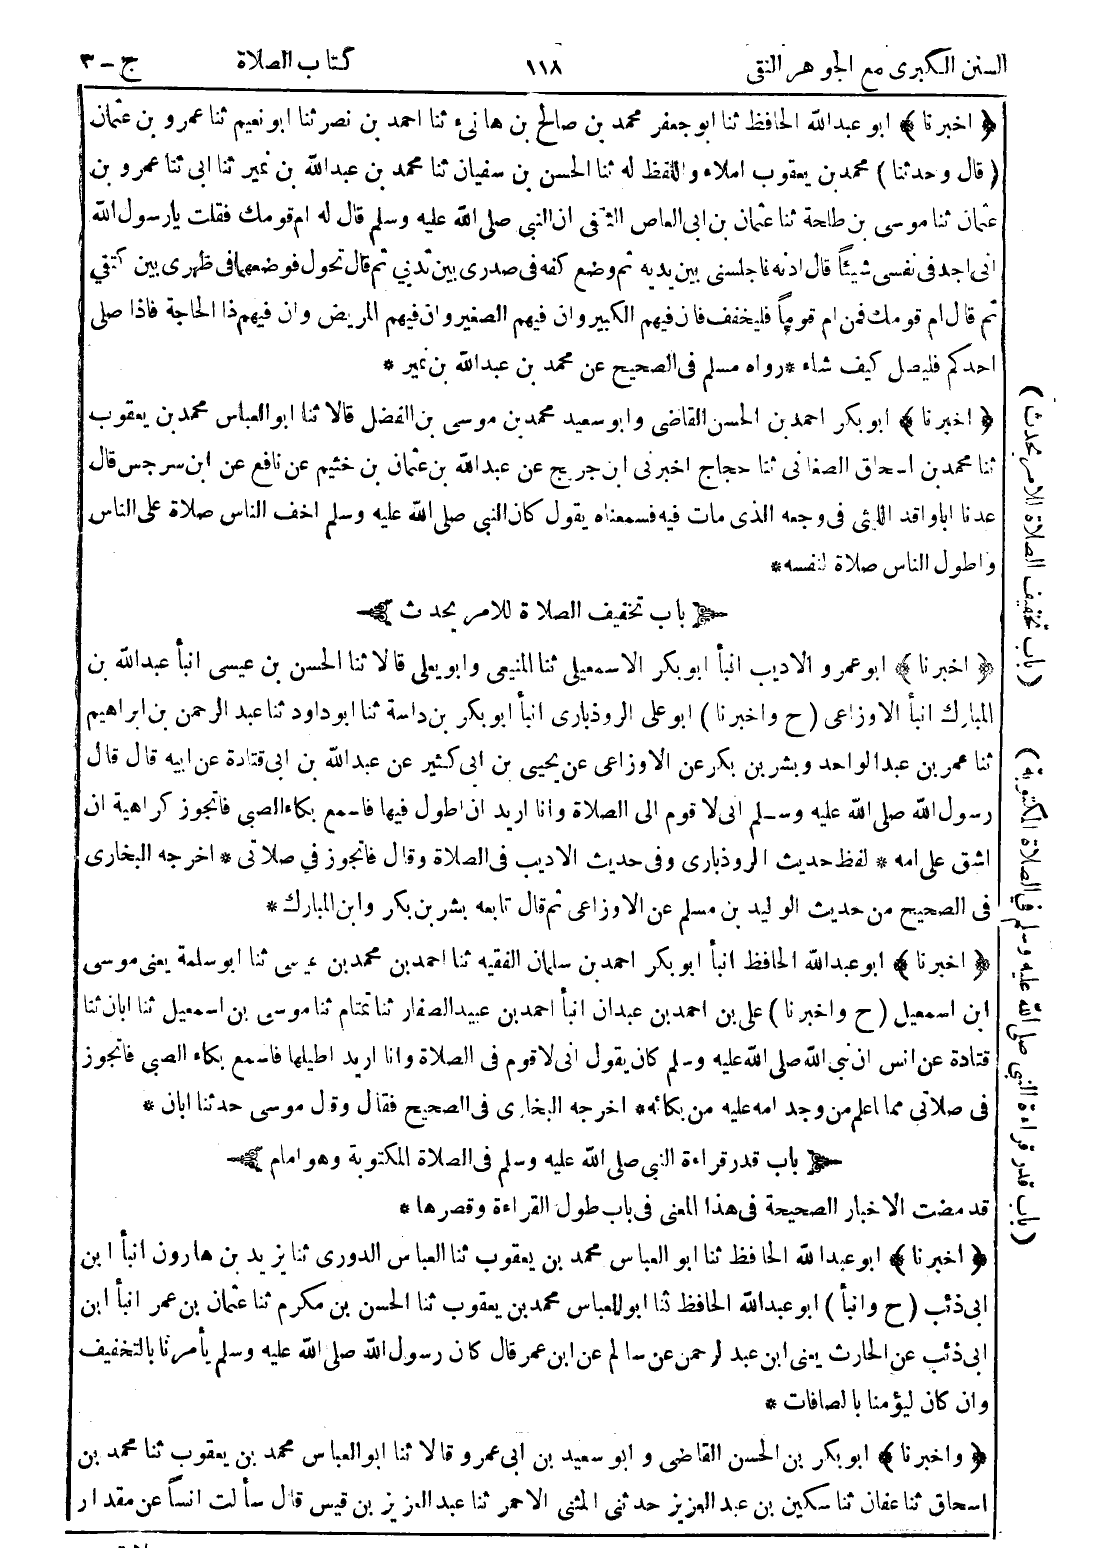 السنن الكبرى مع الجوهر النقى ١١٨ كتاب الصلاة ج - ٣
﴿ اخبرنا ﴾ ابو عبدالله الحافظ ثنا ابوجعفر محمد بن صالح بن هانىء ثنا احمد بن نصر ثنا ابو نعيم ثنا عمرو بن عثمان
( قال وحدثنا ) محمد بن يعقوب املاء واللفظ له ثنا الحسن بن سفيان ثنا محمد بن عبدالله بن نمير ثنا ابى ثنا عمرو بن
عثمان ثنا موسى بن طلحة ثنا عثمان بن ابى العاص الثقفى ان النبي صلى الله عليه وسلم قال له ام قومك فقلت يارسول الله
انى اجد فى نفسى شيئاً قال ادنه فاجلسنى بين يديه ثم وضع كفه فى صدرى بين ثديي ثم قال تحول فوضعها فى ظهرى بين كتفي
ثم قال ام قومك فمن ام قوماً فليخفف فان فيهم الكبير وان فيهم الصغير وان فيهم المريض وان فيهم ذا الحاجة فاذا صلى
احدكم فليصل كيف شاء * رواه مسلم فى الصحيح عن محمد بن عبدالله بن نمير *
﴿ اخبرنا ﴾ ابو بكر احمد بن الحسن القاضى وابو سعيد محمد بن موسى بن الفضل قالا ثنا ابو العباس محمد بن يعقوب
ثنا محمد بن اسحاق الصغانى ثنا حجاج اخبرنى ابن جريج عن عبدالله بن عثمان بن خثيم عن نافع عن ابن سرجس قال
عدنا اباواقد الليثى فى وجعه الذى مات فيه فسمعناه يقول كان النبي صلى الله عليه وسلم اخف الناس صلاة على الناس
واطول الناس صلاة لنفسه *
باب تخفيف الصلاة للامر يحدث
﴿ اخبرنا ﴾ ابو عمرو الاديب انبأ ابوبكر الاسمعيلى ثنا المنيعى وابو يعلى قالا ثنا الحسن بن عيسى انبأ عبدالله بن
المبارك انبأ الاوزاعى ( ح واخبرنا ) ابو على الروذبارى انبأ ابوبكر بن داسة ثنا ابو داود ثنا عبد الرحمن بن ابراهيم
ثنا عمر بن عبدالواحد وبشر بن بكر عن الاوزاعى عن يحيى بن ابى كثير عن عبدالله بن ابى قتادة عن ابيه قال قال
رسول الله صلى الله عليه وسلم انى لاقوم الى الصلاة وانا اريد ان اطول فيها فاسمع بكاء الصبى فاتجوز كراهية ان
اشق على امه * لفظ حديث الروذبارى وفى حديث الاديب فى الصلاة وقال فاتجوز في صلاتى * اخرجه البخارى
فى الصحيح من حديث الوليد بن مسلم عن الاوزاعى ثم قال تابعه بشر بن بكر وابن المبارك *
﴿ اخبرنا ﴾ ابو عبدالله الحافظ انبأ ابو بكر احمد بن سلمان الفقيه ثنا احمد بن محمد بن عيسى ثنا ابو سلمة يعنى موسى
ابن اسمعيل ( ح واخبرنا ) على بن احمد بن عبدان انبأ احمد بن عبيد الصفار ثنا تمتام ثنا موسى بن اسمعيل ثنا ابان ثنا
قتادة عن انس ان نبي الله صلى الله عليه وسلم كان يقول انى لاقوم فى الصلاة وانا اريد اطيلها فاسمع بكاء الصبي فاتجوز
فى صلاتى مما اعلم من وجد امه عليه من بكائه * اخرجه البخارى فى الصحيح فقال وقال موسى حدثنا ابان *
باب قدر قراءة النبي صلى الله عليه وسلم فى الصلاة المكتوبة وهو امام
قد مضت الاخبار الصحيحة فى هذا المعنى فى باب طول القراءة وقصرها *
﴿ اخبرنا ﴾ ابو عبدالله الحافظ ثنا ابو العباس محمد بن يعقوب ثنا العباس الدورى ثنا يزيد بن هارون انبأ ابن
ابى ذئب ( ح وانبأ ) ابو عبدالله الحافظ ثنا ابوالعباس محمد بن يعقوب ثنا الحسن بن مكرم ثنا عثمان بن عمر انبأ ابن
ابى ذئب عن الحارث يعنى ابن عبد الرحمن عن سالم عن ابن عمر قال كان رسول الله صلى الله عليه وسلم يأمرنا بالتخفيف
وان كان ليؤمنا بالصافات *
﴿ واخبرنا ﴾ ابوبكر بن الحسن القاضى و ابو سعيد بن ابى عمرو قالا ثنا ابوالعباس محمد بن يعقوب ثنا محمد بن
اسحاق ثنا عفان ثنا سكين بن عبد العزيز حدثنى المثنى الاحمر ثنا عبدالعزيز بن قيس قال سألت انساً عن مقدار
( باب تخفيف الصلاة للامر يحدث )
( باب قدر قراءة النبي صلى الله عليه وسلم في الصلاة المكتوبة )